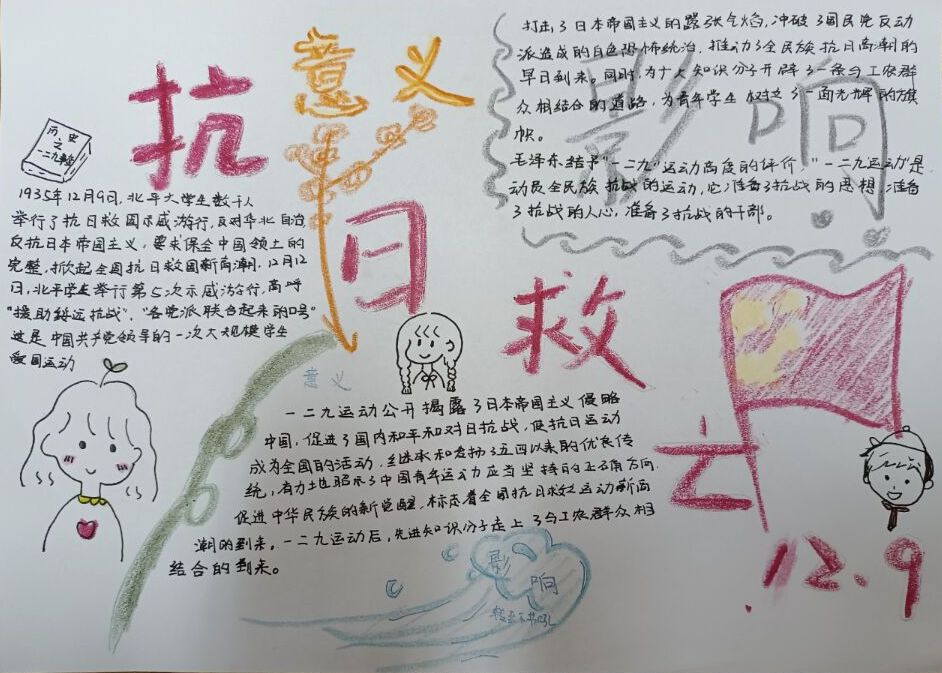 抗
日
救
亡
12.9
意义
历史
之
一二九运动
1935年12月9日，北平大学生数千人
举行了抗日救国示威游行，反对华北自治，
反抗日本帝国主义，要求保全中国领土的
完整，掀起全国抗日救国新高潮，12月12
日，北平学生举行第5次示威游行，高呼
"援助绥远抗战"，"各党派联合起来的口号"
这是中国共产党领导的一次大规模学生
爱国运动
影响
打击了日本帝国主义的嚣张气焰，冲破了国民党反动
派造成的白色恐怖统治，推动了全民族抗日高潮的
早日到来。同时，为广大知识分子开辟了一条与工农群
众相结合的道路，为青年学生树立了一面光辉的旗
帜。
毛泽东给予"一二九"运动高度的评价，"一二九运动"是
动员全民族抗战的运动，它准备了抗战的思想，准备
了抗战的人心，准备了抗战的干部。
意义
一二九运动公开揭露了日本帝国主义侵略
中国，促进了国内和平和对日抗战，使抗日运动
成为全国的活动，继承和发扬了五四以来的优良传
统，有力地昭示了中国青年运动应当坚持的正确方向，
促进中华民族的新觉醒，标志着全国抗日救亡运动新高
潮的到来。一二九运动后，先进知识分子走上了与工农群众相
结合的到来。
影
响